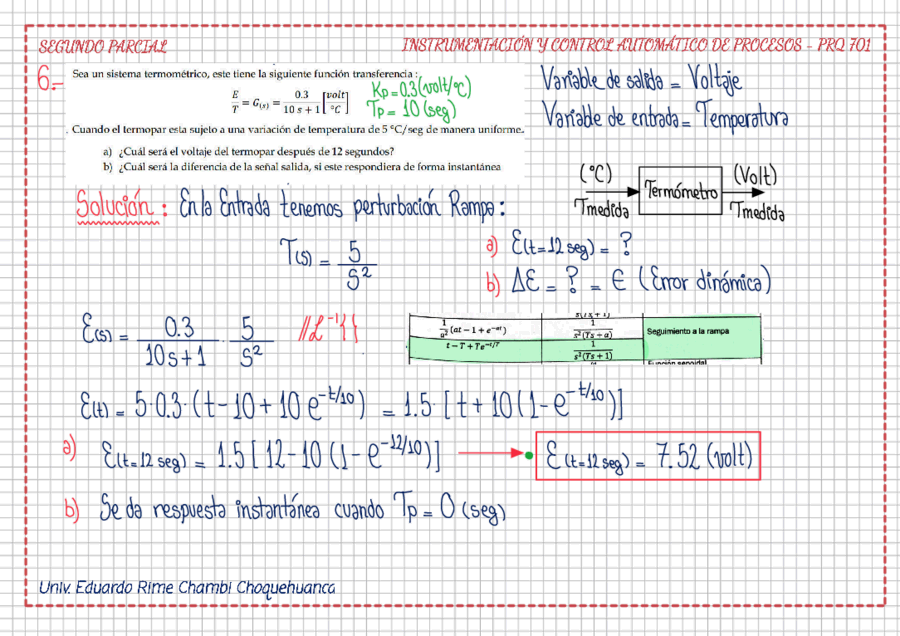 SEGUNDO PARCIAL
INSTRUMENTACIÓN Y CONTROL AUTOMÁTICO DE PROCESOS - PRQ 701
6.-
Sea un sistema termométrico, este tiene la siguiente función transferencia :
E/T = G(s) = 0.3/(10 s + 1) [volt/°C]
Kp = 0.3 (volt/°C)
Tp = 10 (seg)
Variable de salida = Voltaje
Variable de entrada = Temperatura
. Cuando el termopar esta sujeto a una variación de temperatura de 5 °C/seg de manera uniforme.
a) ¿Cuál será el voltaje del termopar después de 12 segundos?
b) ¿Cuál será la diferencia de la señal salida, si este respondiera de forma instantánea
(°C) Termómetro (Volt)
Tmedida Tmedida
Solución : En la Entrada tenemos perturbación Rampa :
T(s) = 5/S²
a) Ɛ(t=12 seg) = ?
b) ΔƐ = ? = ϵ (Error dinámica)
Ɛ(s) = 0.3/(10s+1) · 5/S² //ℒ⁻¹{}
1/a² (at − 1 + e^−at) 1/(s²(s + a)) Seguimiento a la rampa
t − T + Te^−t/T 1/(s²(Ts + 1))
Ɛ(t) = 5·0.3·(t−10+10 e^−t/10) = 1.5·[t+10(1−e^−t/10)]
a) Ɛ(t=12 seg) = 1.5[12−10(1−e^−12/10)] Ɛ(t=12 seg) = 7.52 (volt)
b) Se da respuesta instantánea cuando Tp = 0 (seg)
Univ. Eduardo Rime Chambi Choquehuanca